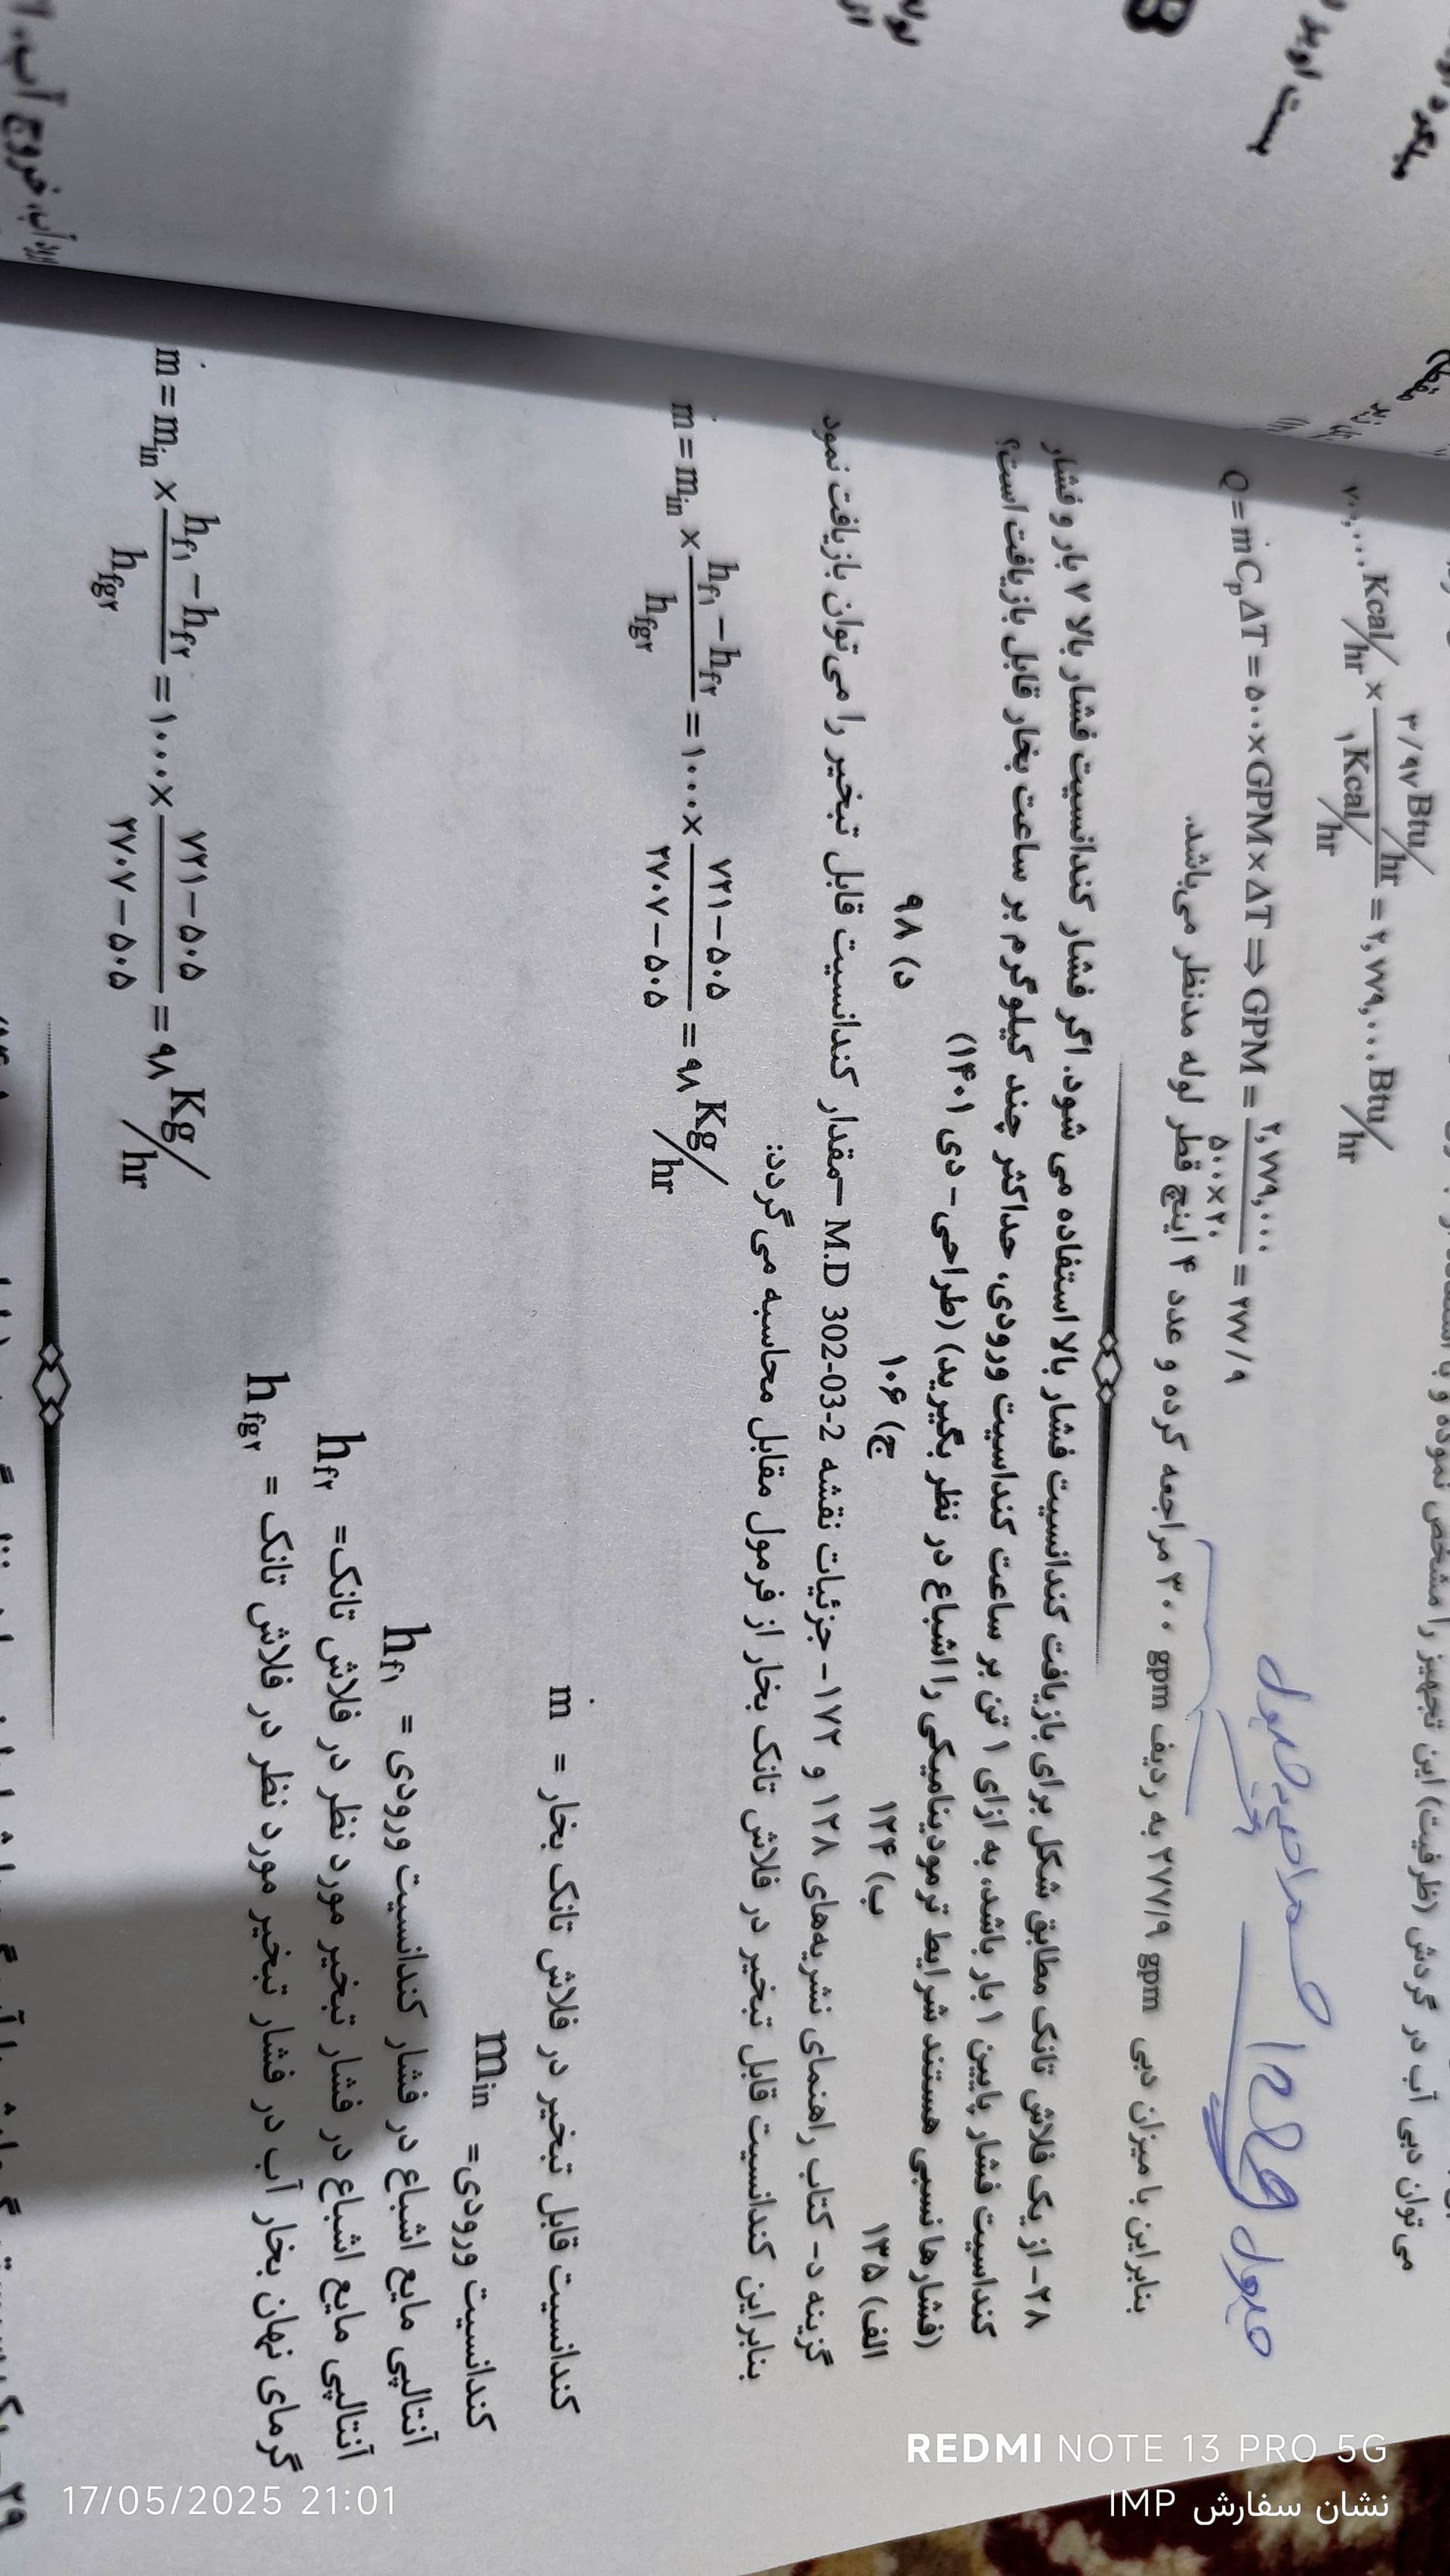 می‌توان دبی آب در گردش (ظرفیت) این تجهیز را مشخص نموده و با
Kcal/hr × ۳/۹۷ Btu/hr / ۱ Kcal/hr = ۲,۷۷۹,۰۰۰ Btu/hr
Q = ṁCpΔT = ۵۰۰×GPM×ΔT ⇒ GPM = ۲,۷۷۹,۰۰۰ / ۵۰۰×۲۰ = ۲۷۷/۹
بنابراین با میزان دبی ۲۷۷/۹ gpm به ردیف ۳۰۰ gpm مراجعه کرده و عدد ۴ اینچ قطر لوله مدنظر می‌باشد.
۲۸- از یک فلاش تانک مطابق شکل برای بازیافت کندانسیت فشار بالا استفاده می شود. اگر فشار کندانسیت فشار بالا ۷ بار و فشار
کنداسیت فشار پایین ۱ بار باشد، به ازای ۱ تن بر ساعت کنداسیت ورودی، حداکثر چند کیلوگرم بر ساعت بخار قابل بازیافت است؟
(فشارها نسبی هستند شرایط ترمودینامیکی را اشباع در نظر بگیرید) (طراحی- دی ۱۴۰۱)
الف) ۱۳۵ ب) ۱۲۴ ج) ۱۰۶ د) ۹۸
گزینه د- کتاب راهنمای نشریه‌های ۱۲۸ و ۱۷۲- جزئیات نقشه M.D 302-03-2 –مقدار کندانسیت قابل تبخیر را می‌توان بازیافت نمود
بنابراین کندانسیت قابل تبخیر در فلاش تانک بخار از فرمول مقابل محاسبه می‌گردد:
ṁ = ṁin × hf۱ − hf۲ / hfg۲ = ۱۰۰۰× ۷۲۱−۵۰۵ / ۲۷۰۷−۵۰۵ = ۹۸ Kg/hr
کندانسیت قابل تبخیر در فلاش تانک بخار = ṁ
کندانسیت ورودی= min
آنتالپی مایع اشباع در فشار کندانسیت ورودی = hf۱
آنتالپی مایع اشباع در فشار تبخیر مورد نظر در فلاش تانک= hf۲
گرمای نهان بخار آب در فشار تبخیر مورد نظر در فلاش تانک = hfg۲
ṁ = min × hf۱ − hf۲ / hfg۲ = ۱۰۰۰× ۷۲۱−۵۰۵ / ۲۷۰۷−۵۰۵ = ۹۸ Kg/hr
REDMI NOTE 13 PRO 5G
نشان سفارش IMP
17/05/2025 21:01